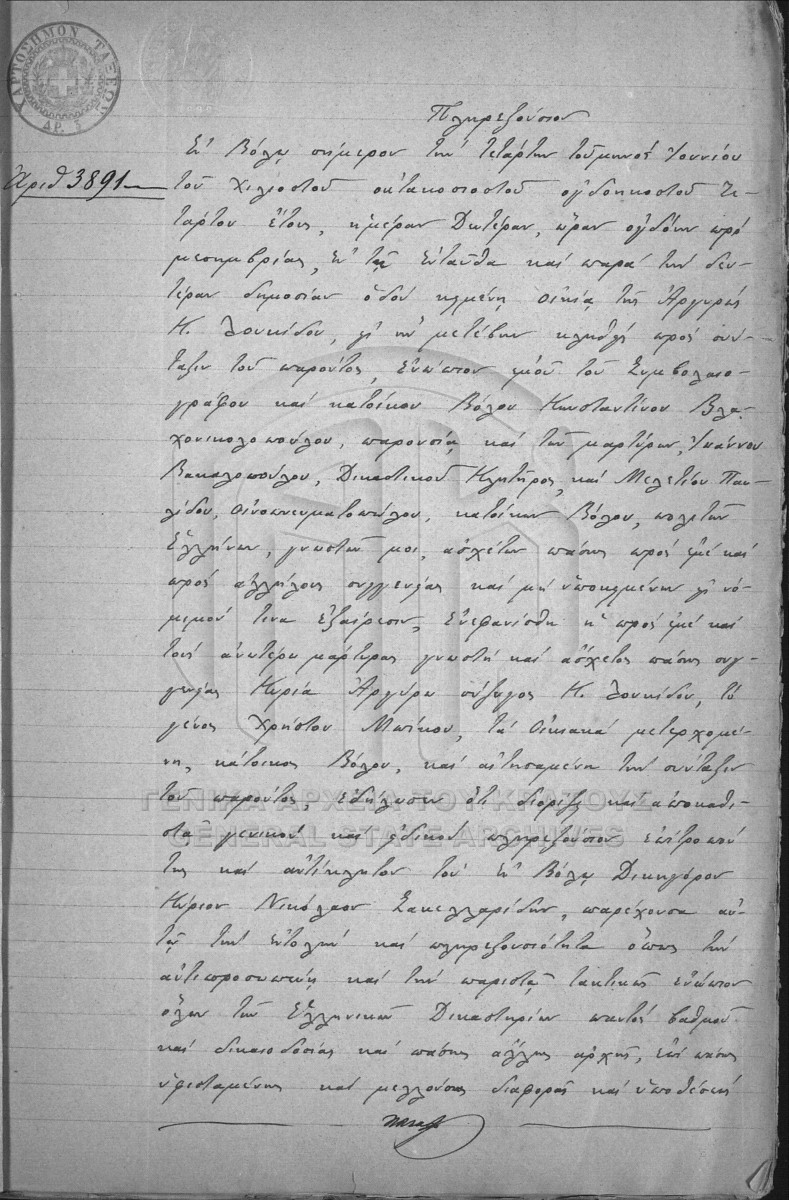 ΧΑΡΤΟΣΗΜΟΝ ΤΑΞΕΩΣ
ΔΡ. 5
Πληρεξούσιον
Ἀριθ 3891
Ἐν Βόλῳ σήμερον τὴν τετάρτην τοῦ μηνὸς Ἰουνίου
τοῦ χιλιοστοῦ ὀκτακοσιοστοῦ ὀγδοηκοστοῦ τε-
τάρτου ἔτους, ἡμέραν Δευτέραν, ὥραν ὀγδόην πρὸ
μεσημβρίας, ἐν τῇ ἐνταῦθα καὶ παρὰ τὴν δευ-
τέραν δημοσίαν ὁδὸν κειμένῃ οἰκίᾳ τῆς Ἀργυρῶς
Κ. Λουκίδου, εἰς ἣν μετέβην κληθεὶς πρὸς σύν-
ταξιν τοῦ παρόντος, ἐνώπιον ἐμοῦ τοῦ Συμβολαιο-
γράφου καὶ κατοίκου Βόλου Κωνσταντίνου Βλα-
χονικολοπούλου, παρουσίᾳ καὶ τῶν μαρτύρων, Ἰωάννου
Βακαλοπούλου, Δικαστικοῦ Κλητῆρος, καὶ Μελετίου Παυ-
λίδου, οἰνοπνευματοπώλου, κατοίκων Βόλου, πολιτῶν
Ἑλλήνων, γνωστῶν μοι, ἀσχέτων πάσης πρὸς ἐμὲ καὶ
πρὸς ἀλλήλους συγγενείας καὶ μὴ ὑποκειμένων εἰς νό-
μιμόν τινα ἐξαίρεσιν, ἐνεφανίσθη ἡ πρὸς ἐμὲ καὶ
τοὺς ἀνωτέρω μάρτυρας γνωστὴ καὶ ἄσχετος πάσης συγ-
γενείας Κυρία Ἀργύρω σύζυγος Κ. Λουκίδου, τὸ
γένος Χρήστου Μπίκου, τὰ οἰκιακὰ μετερχομέ-
νη, κάτοικος Βόλου, καὶ αἰτησαμένη τὴν σύνταξιν
τοῦ παρόντος, ἐδήλωσεν ὅτι διορίζει καὶ ἀποκαθι-
στᾷ γενικὸν καὶ εἰδικὸν πληρεξούσιον ἐπίτροπόν
της καὶ ἀντίκλητον τὸν ἐν Βόλῳ Δικηγόρον
Κύριον Νικόλαον Σακελλαρίδην, παρέχουσα αὐ-
τῷ τὴν ἐντολὴν καὶ πληρεξουσιότητα ὅπως τὴν
ἀντιπροσωπεύῃ καὶ τὴν παριστᾷ τακτικῶς ἐνώπιον
ὅλων τῶν Ἑλληνικῶν Δικαστηρίων παντὸς βαθμοῦ
καὶ δικαιοδοσίας καὶ πάσης ἄλλης ἀρχῆς, ἐπὶ πάσης
ὑφισταμένης καὶ μελλούσης διαφορᾶς καὶ ὑποθέσεως
ΓΕΝΙΚΑ ΑΡΧΕΙΑ ΤΟΥ ΚΡΑΤΟΥΣ
GENERAL STATE ARCHIVES